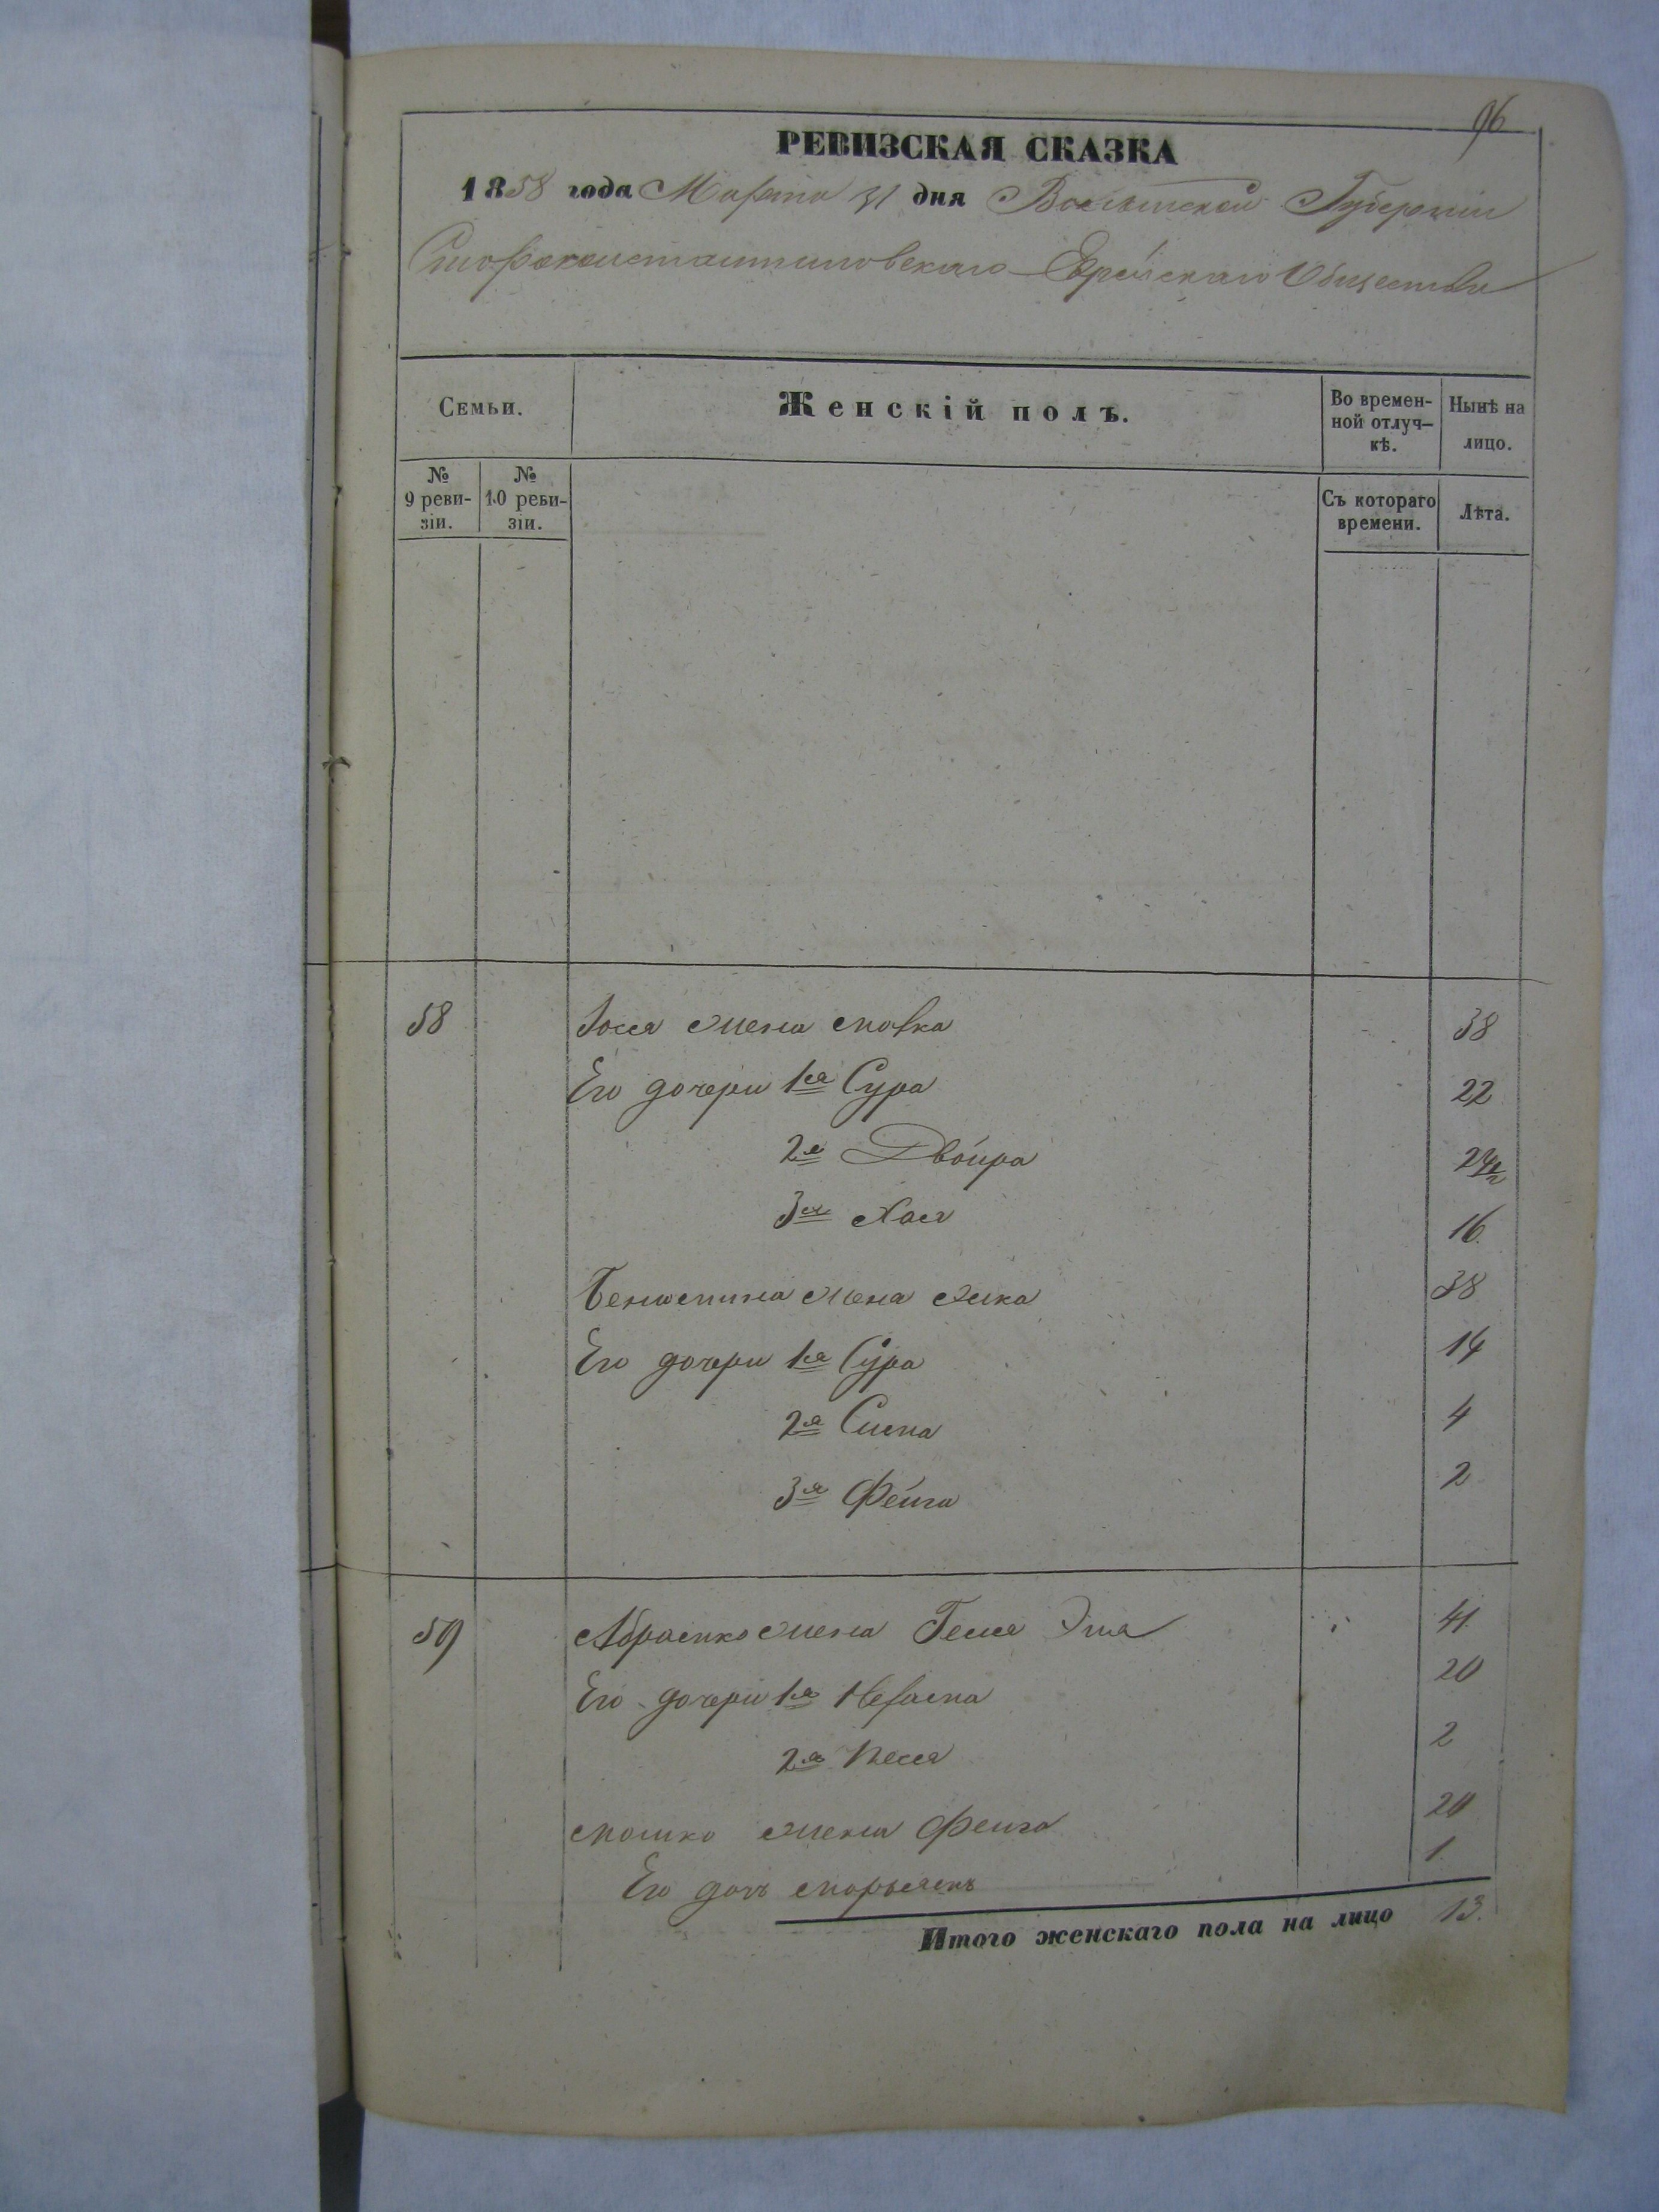 96
РЕВИЗСКАЯ СКАЗКА
1858 года Марта 31 дня Волынской Губернии
Староконстантиновскаго Еврейскаго Общества
Семьи.
Женскій полъ.
Во времен-
ной отлуч-
кѣ.
Нынѣ на
лицо.
№
9 реви-
зіи.
№
10 реви-
зіи.
Съ котораго
времени.
Лѣта.
58 Iося жена 38
Его дочери 1я Сура 22
2я Двойра
3я Хая 16
Беніомина жена 38
Его дочери 1я Сура 14
2я Сима 4
3я Фейга 2
59 Абрамко жена 41
Его дочери 1я Нехама 20
2я Песся 2
Мошко жена Фейга 20
Его дочь 1
Итого женскаго пола на лицо 13.